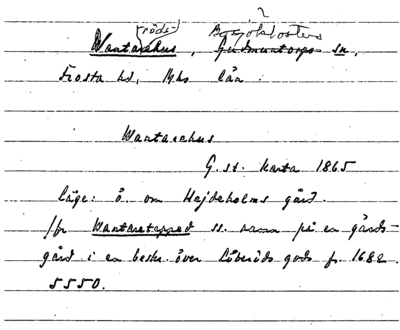 röds- Bosjökloster
Wantarehus, Gudmuntorps sn,
Frosta hd, Mhs län.
Wantarehus
G. st. karta 1865
läge: ö. om Hejdeholms gård.
/fr Wantaretorped ss. namn på en gårds-
gård i en beskr. över Löberöds gods fr. 1682.
5550.